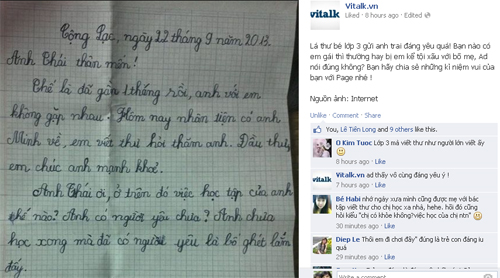 Cộng Lạc, ngày 22 tháng 9 năm 2013.
Anh Thái thân mến!
Thế là đã gần 1 tháng rồi, anh với em
không gặp nhau. Hôm nay nhân tiện có anh
Minh về, em viết thư hỏi thăm anh. Đầu thư,
em chúc anh mạnh khoẻ.
Anh Thái ơi, ở trên đó việc học tập của anh
thế nào? Anh có người yêu chưa? Anh chưa
học xong mà đã có người yêu là bố ghét lắm
đấy.
vitalk
Vitalk.vn
Liked · 8 hours ago · Edited
Lá thư bé lớp 3 gửi anh trai đáng yêu quá! Bạn nào có
em gái thì thường hay bị em kể tội xấu với bố mẹ, Ad
nói đúng không? Bạn hãy chia sẻ những kỉ niệm vui của
bạn với Page nhé !
Nguồn ảnh: Internet
Unlike · Comment · Share
You, Lê Tiến Long and 9 others like this.
O Kim Tuoc Lớp 3 mà viết thư như người lớn viết ấy
8 hours ago · Like
vitalk
Vitalk.vn ad thấy vô cùng đáng yêu ý !
7 hours ago · Like
Bé Habi nhớ ngày xưa mình cũng được mẹ với bác
tập viết thư cho chị học xa nhà, hehe. hồi đó cũng
hỏi kiểu "chị có khỏe không?việc học của chị ntn"
30 minutes ago · Like
Diep Le Thôi em đi chơi đây" đúng là trẻ con đáng iu
quá
29 minutes ago · Like
Write a comment...